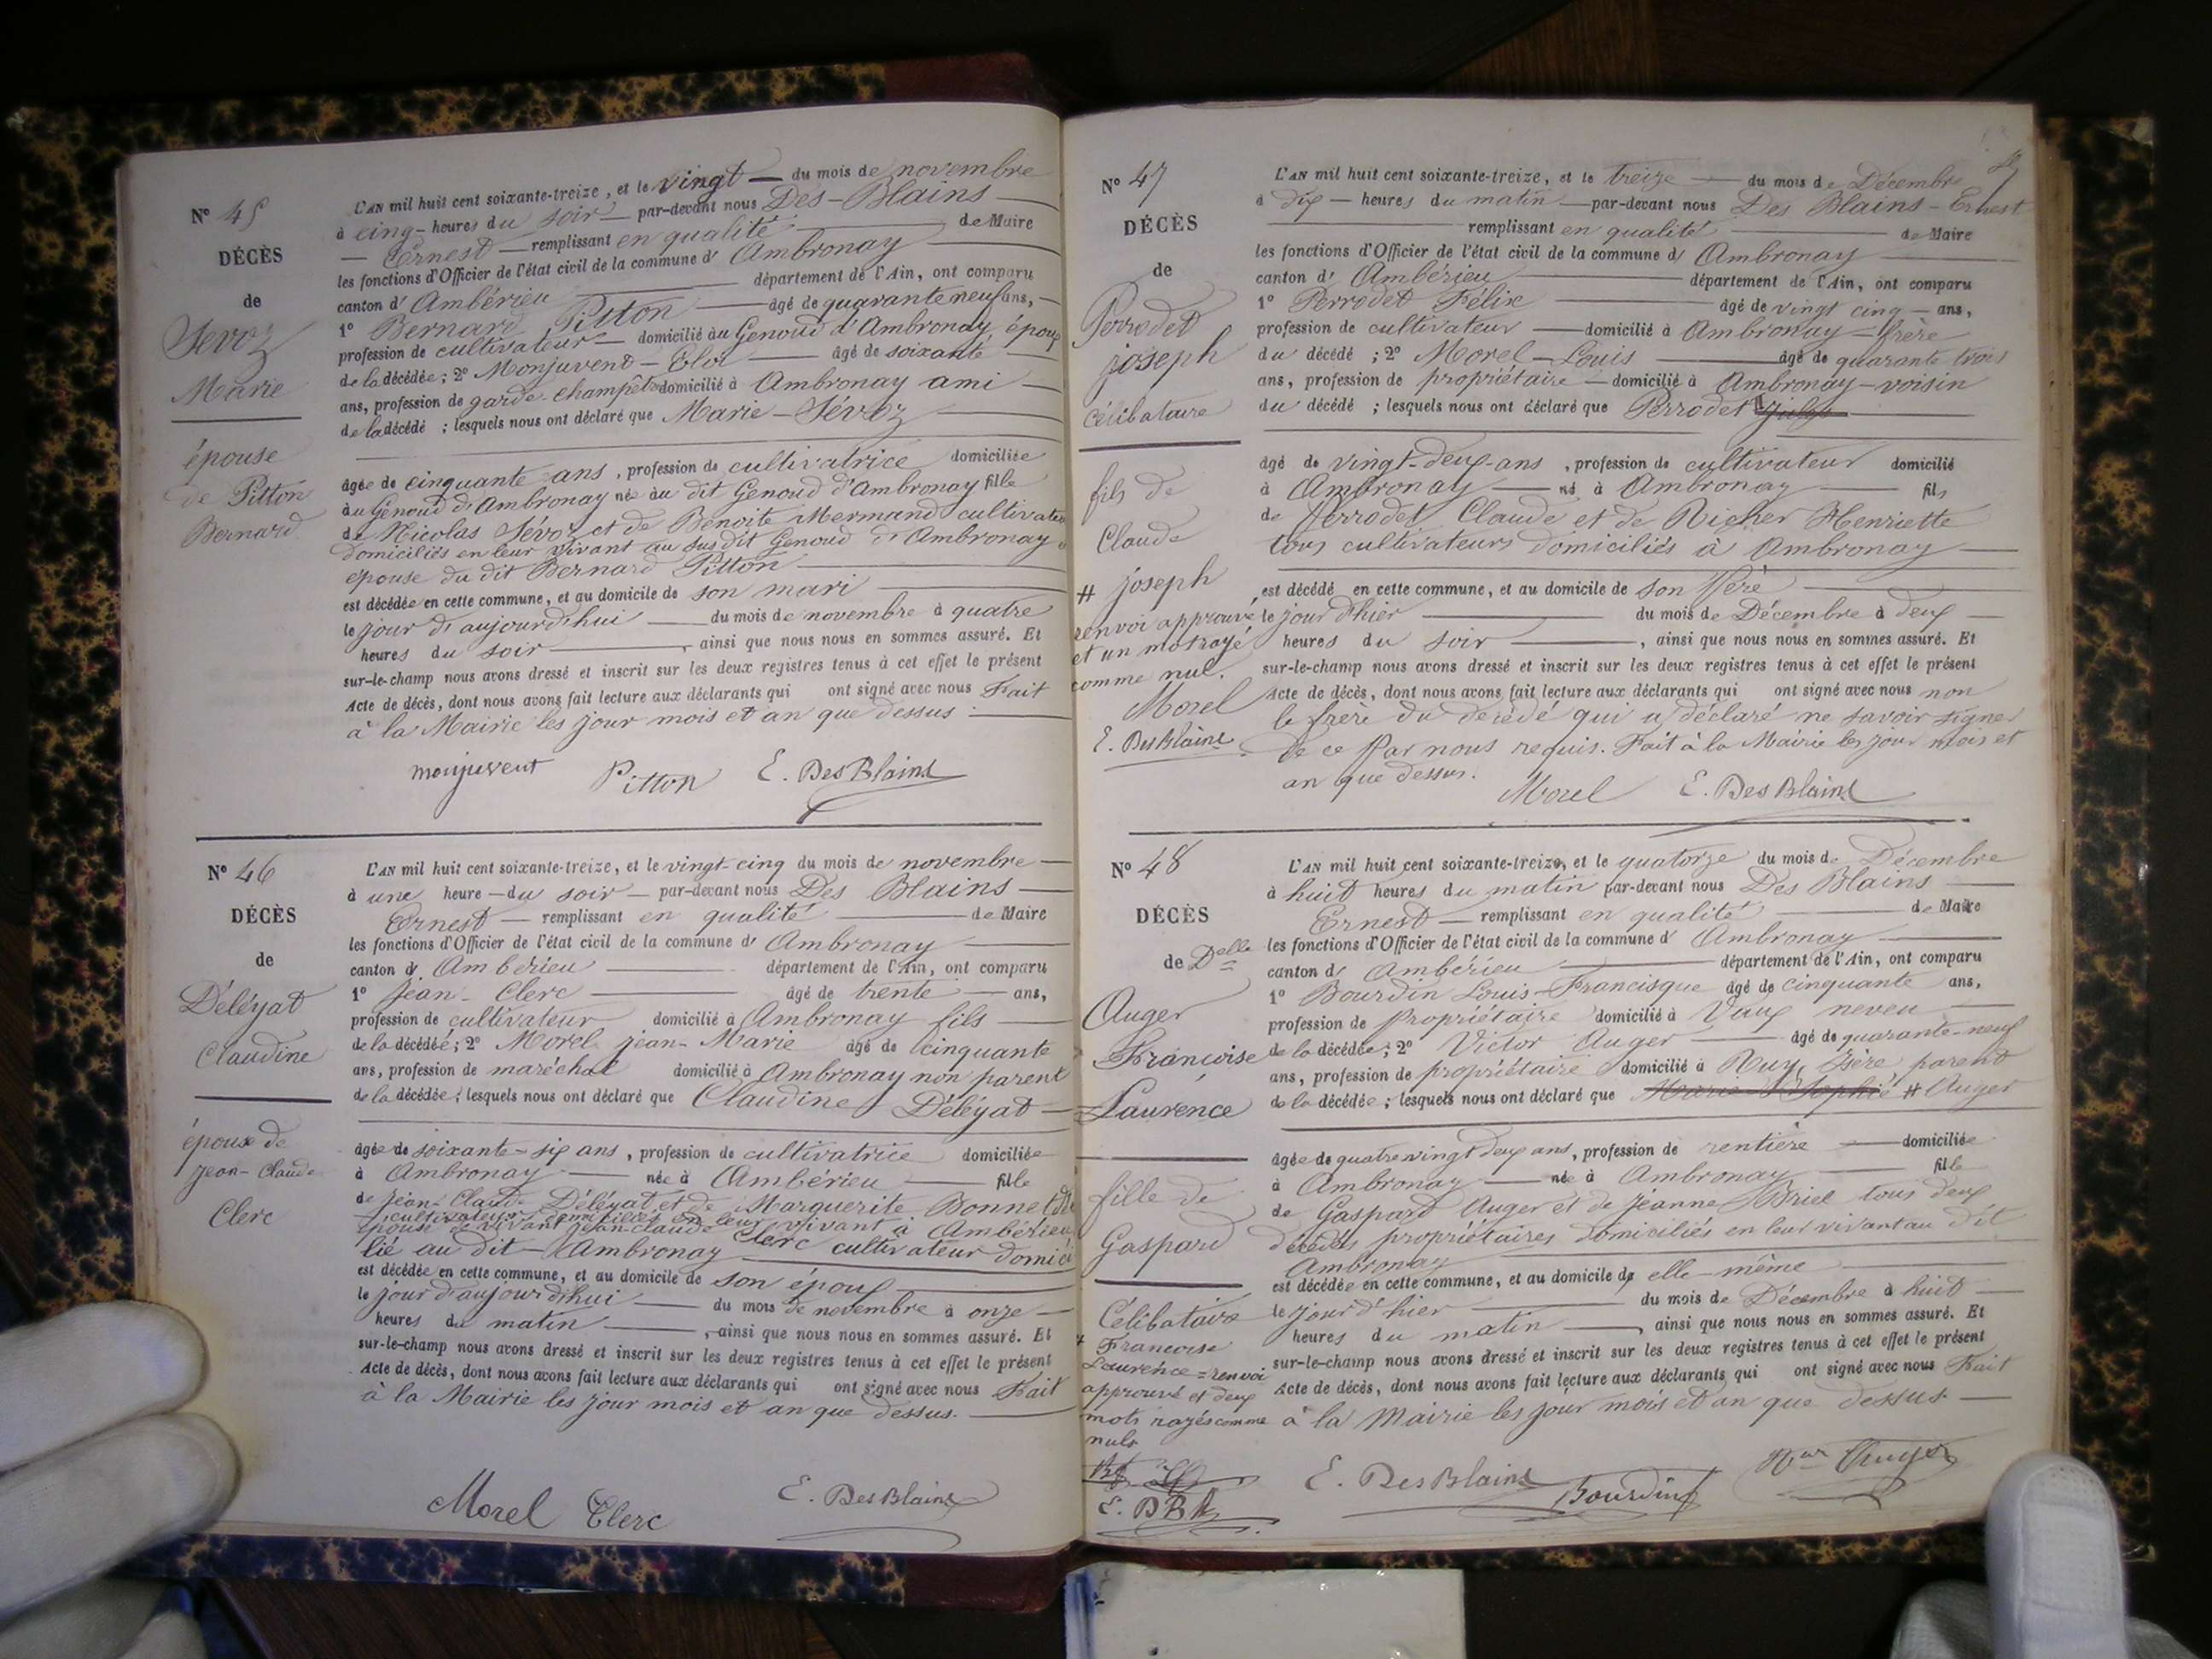 N° 45
DÉCÈS
de
Sevoz
Marie
épouse
de Pitton
Bernard
L'AN mil huit cent soixante-treize, et le vingt — du mois de novembre
à cinq — heures du soir — par-devant nous Des-Blains —
— Ernest — remplissant en qualité — de Maire
les fonctions d'Officier de l'état civil de la commune d' Ambronay —
canton d' Ambérieu — département de l'Ain, ont comparu
1° Bernard Pitton — âgé de quarante neuf ans, —
profession de cultivateur — domicilié au Genoud d'Ambronay époux
de la décédée; 2° Monjuvent-Eloi — âgé de soixante —
ans, profession de garde-champêtre domicilié à Ambronay ami —
de la décédé ; lesquels nous ont déclaré que Marie-Sévoz —
âgée de cinquante ans, profession de cultivatrice domiciliée
au Genoud d'Ambronay née au dit Genoud d'Ambronay fille
de Nicolas Sévoz et de Benoite Mermand cultivateurs
domiciliés en leur vivant au sus dit Genoud d'Ambronay
épouse du dit Bernard Pitton —
est décédée en cette commune, et au domicile de son mari —
le jour d'aujourd'hui — du mois de novembre à quatre
heures du soir —, ainsi que nous nous en sommes assuré. Et
sur-le-champ nous avons dressé et inscrit sur les deux registres tenus à cet effet le présent
Acte de décès, dont nous avons fait lecture aux déclarants qui ont signé avec nous Fait
à la Mairie les jour mois et an que dessus : —
monjuvent Pitton E. DesBlains
N° 46
DÉCÈS
de
Déléyat
Claudine
épouse de
jean-Claude
Clerc
L'AN mil huit cent soixante-treize, et le vingt-cinq du mois de novembre —
à une heure — du soir — par-devant nous Des Blains —
Ernest — remplissant en qualité — de Maire
les fonctions d'Officier de l'état civil de la commune d' Ambronay —
canton d' Ambérieu — département de l'Ain, ont comparu
1° Jean-Clerc — âgé de trente — ans,
profession de cultivateur domicilié à Ambronay fils —
de la décédée; 2° Morel jean-Marie âgé de cinquante
ans, profession de maréchal domicilié à Ambronay non parent
de la décédée; lesquels nous ont déclaré que Claudine Déléyat —
âgée de soixante-six ans, profession de cultivatrice domiciliée
à Ambronay — née à Ambérieu — fille
de jean-Claude Déléyat et de Marguerite Bonnet
cultivateurs domiciliés en leur vivant à Ambérieu,
épouse de vivant jean-Claude Clerc cultivateur domici
lié au dit-Ambronay —
est décédée en cette commune, et au domicile de son époux —
le jour d'aujourd'hui — du mois de novembre à onze —
heures du matin —, ainsi que nous nous en sommes assuré. Et
sur-le-champ nous avons dressé et inscrit sur les deux registres tenus à cet effet le présent
Acte de décès, dont nous avons fait lecture aux déclarants qui ont signé avec nous Fait
à la Mairie les jour mois et an que dessus. —
Morel Clerc E. DesBlains
N° 47
DÉCÈS
de
Perrodet
joseph
célibataire
fils de
Claude
# joseph
renvoi approuvé
et un mot rayé
comme nul.
Morel
E. DesBlains
L'AN mil huit cent soixante-treize, et le treize — du mois de Décembre
à dix — heures du matin — par-devant nous Des Blains-Ernest
— remplissant en qualité — de Maire
les fonctions d'Officier de l'état civil de la commune d' Ambronay —
canton d' Ambérieu — département de l'Ain, ont comparu
1° Perrodet Félix — âgé de vingt cinq — ans,
profession de cultivateur — domicilié à Ambronay — frère
du décédé ; 2° Morel-Louis — âgé de quarante trois
ans, profession de propriétaire — domicilié à Ambronay-voisin
du décédé ; lesquels nous ont déclaré que Perrodet #
âgé de vingt-deux-ans, profession de cultivateur domicilié
à Ambronay — né à Ambronay — fils
de Perrodet Claude et de Richer Henriette
tous cultivateurs domiciliés à Ambronay —
est décédé en cette commune, et au domicile de son Père —
le jour d'hier — du mois de Décembre à deux —
heures du soir —, ainsi que nous nous en sommes assuré. Et
sur-le-champ nous avons dressé et inscrit sur les deux registres tenus à cet effet le présent
Acte de décès, dont nous avons fait lecture aux déclarants qui ont signé avec nous non
le frère du décédé qui a déclaré ne savoir signer
de ce Par nous requis. Fait à la Mairie les jour mois et
an que dessus.
Morel E. DesBlains
N° 48
DÉCÈS
de Delle
Auger
Françoise
Laurence
fille de
Gaspard
Célibataire
# Françoise
Laurence = renvoi
approuvé et deux
mots rayés comme
nuls
E. DB
L'AN mil huit cent soixante-treize, et le quatorze du mois de Décembre
à huit heures du matin par-devant nous Des Blains —
Ernest — remplissant en qualité — de Maire
les fonctions d'Officier de l'état civil de la commune d' Ambronay —
canton d' Ambérieu — département de l'Ain, ont comparu
1° Bourdin Louis-Francisque âgé de cinquante ans,
profession de Propriétaire domicilié à Vaux neveu —
de la décédée; 2° Victor Auger — âgé de quarante-neuf
ans, profession de propriétaire domicilié à Ruy, Isère, parent
de la décédée; lesquels nous ont déclaré que Marie Sophie # Auger
âgée de quatre vingt deux ans, profession de rentière — domiciliée
à Ambronay — née à Ambronay — fille
de Gaspard Auger et de Jeanne Briel tous deux
décédés propriétaires domiciliés en leur vivant au dit
Ambronay —
est décédée en cette commune, et au domicile de elle-même —
le jour d'hier — du mois de Décembre à huit —
heures du matin —, ainsi que nous nous en sommes assuré. Et
sur-le-champ nous avons dressé et inscrit sur les deux registres tenus à cet effet le présent
Acte de décès, dont nous avons fait lecture aux déclarants qui ont signé avec nous Fait
à la Mairie les jour mois et an que dessus —
E. DesBlains Bourdin Auger